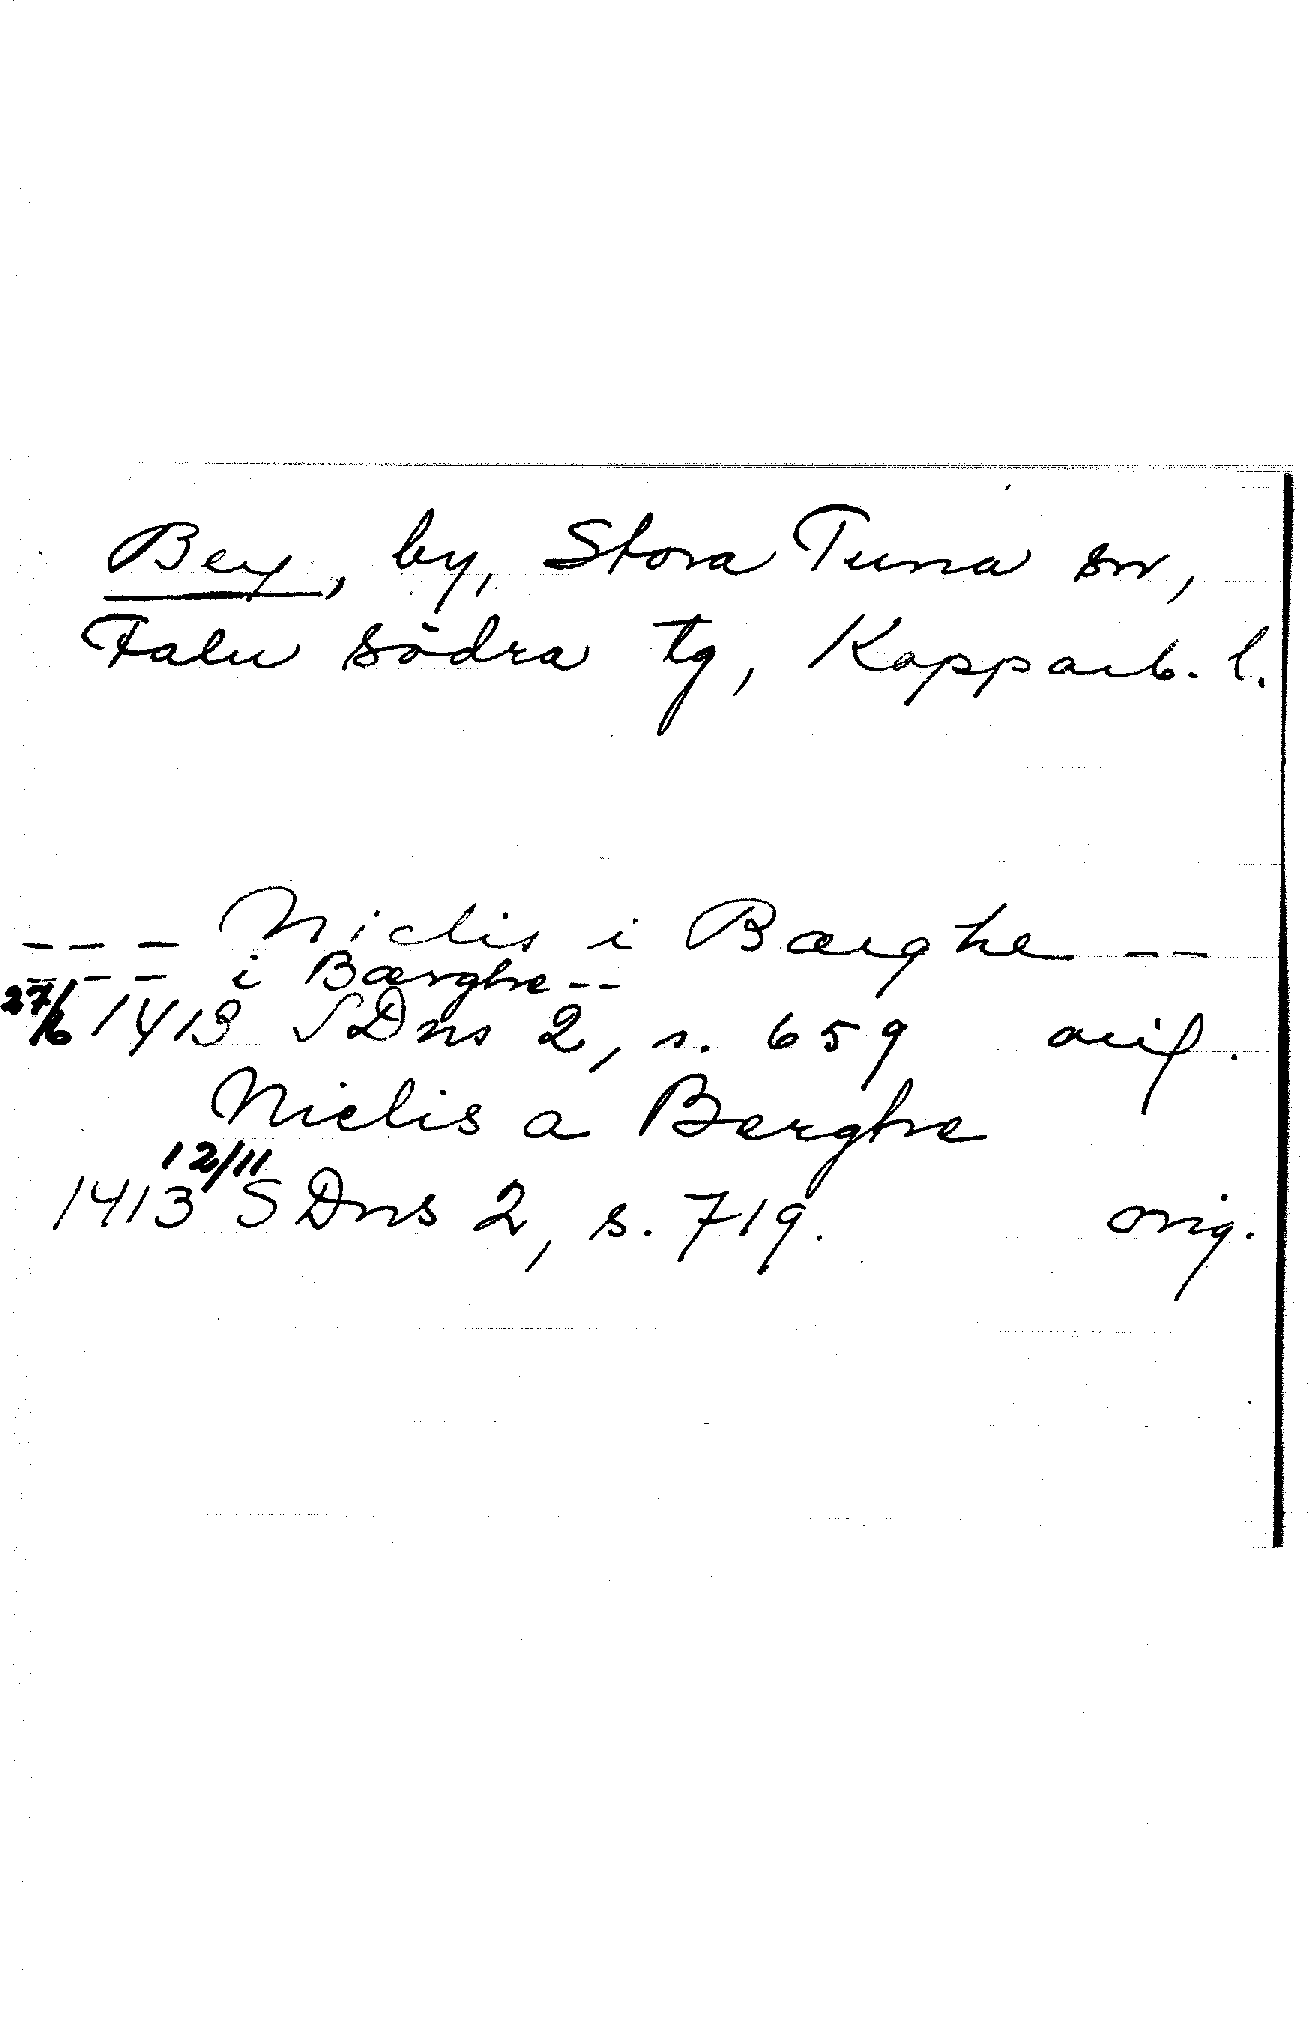 Berg, by, Stora Tuna sn,
Falu södra tg, Kopparb. l.
--- Niclis i Bærghe --
--- i Bærghe --
27/6 1413 SDns 2, s. 659 orig.
Niclis a Berghe
1413 12/11 SDns 2, s. 719. orig.